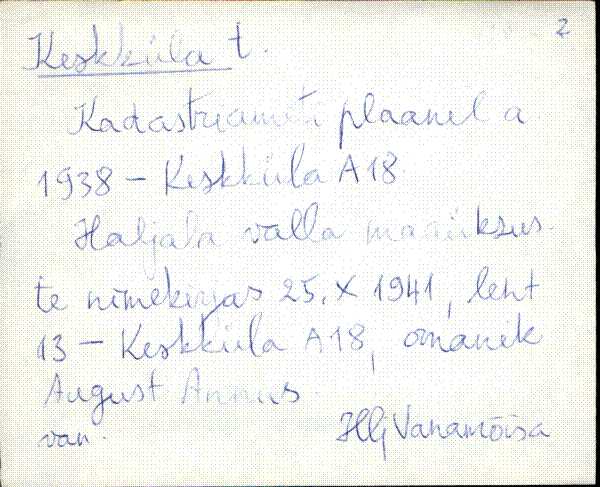 2
Keskküla t.
Kadastriameti plaanil a
1938 – Keskküla A 18
Haljala valla maaüksus-
te nimekirjas 25. X 1941, leht
13 – Keskküla A 18, omanik
August Annus.
van. Hlj Vanamõisa